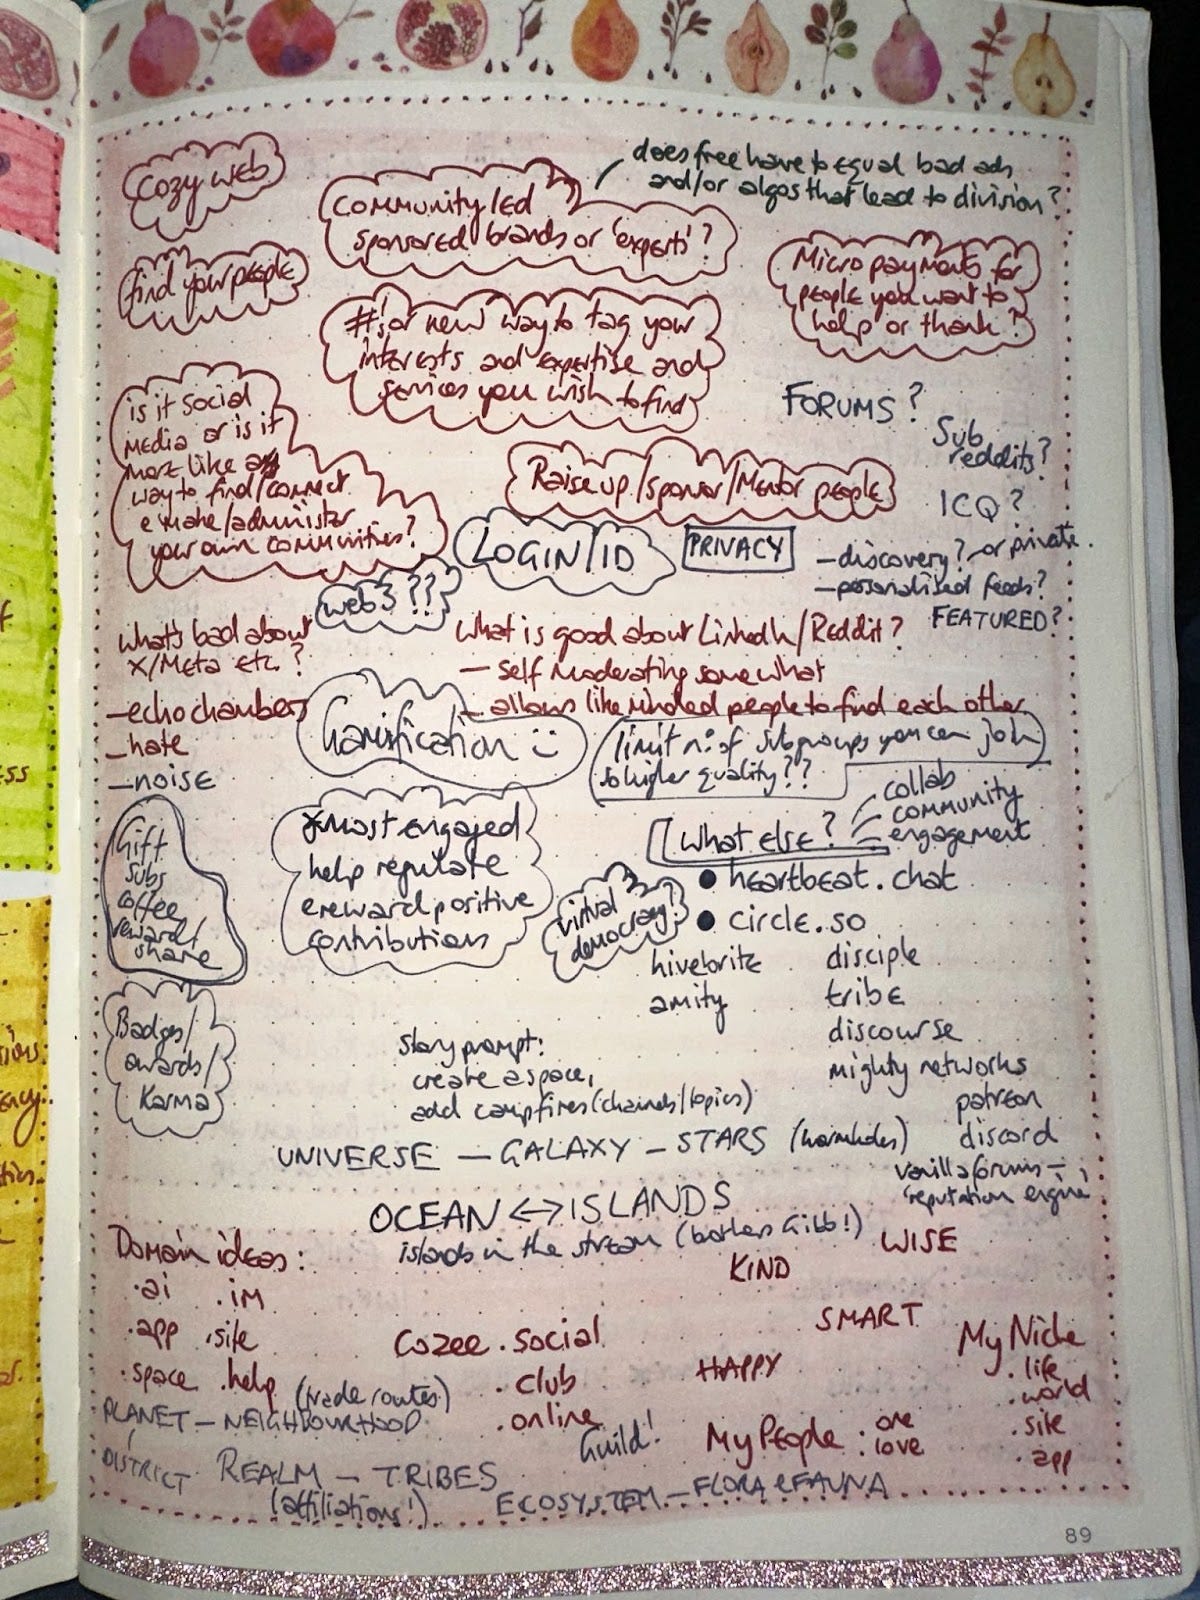 Cozy web
does free have to equal bad ads
and/or algos that lead to division?
Community led
sponsored brands or 'experts'?
find your people
Micropayments for
people you want to
help or thank?
#'s or new way to tag your
interests and expertise and
services you wish to find
is it social
media or is it
more like a
way to find/connect
e make/administer
your own communities?
FORUMS?
Sub
reddits?
Raise up/sponsor/Mentor people
ICQ?
LOGIN/ID
PRIVACY
- discovery? or private
- personalised feeds?
FEATURED?
web3??
what's bad about
X/Meta etc.?
- echo chambers
- hate
- noise
What is good about LinkedIn/Reddit?
- self moderating somewhat
- allows like minded people to find each other
Gamification
limit no. of subgroups you can join
so higher quality??
Gift
subs
coffee
reward/
share
*most engaged
help regulate
e reward positive
contributions
What else?
collab
community
engagement
• heartbeat.chat
• circle.so
virtual
democracy?
hivebrite
amity
disciple
tribe
discourse
mighty networks
patreon
discord
vanilla forums -
'reputation engine'
Badges/
awards/
Karma
story prompt:
create a space,
add campfires (channels/topics)
UNIVERSE - GALAXY - STARS (wormholes)
OCEAN <-> ISLANDS
islands in the stream (brothers Gibb!)
Domain ideas:
.ai .im
.app .site
.space .help
WISE
KIND
SMART
HAPPY
Cozee .social
.club
.online
My Niche
.life
.world
.site
.app
My People : one
love
(trade routes)
PLANET - NEIGHBOURHOOD
Guild!
DISTRICT
REALM - TRIBES
(affiliations!)
ECOSYSTEM - FLORA & FAUNA
89